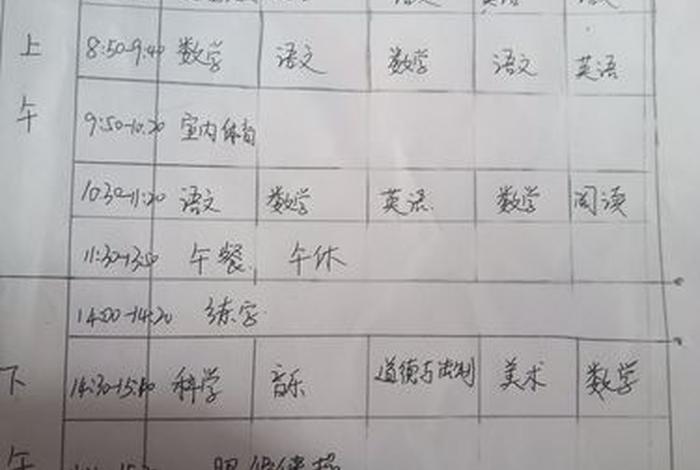 上午
8:50-9:40 数学 语文 数学 语文 英语
9:50-10:20 室内体育
10:30-11:20 语文 数学 英语 数学 阅读
11:30-13:50 午餐 午休
14:00-14:20 练字
下午
14:30-15:10 科学 音乐 道德与法制 美术 数学
眼保健操